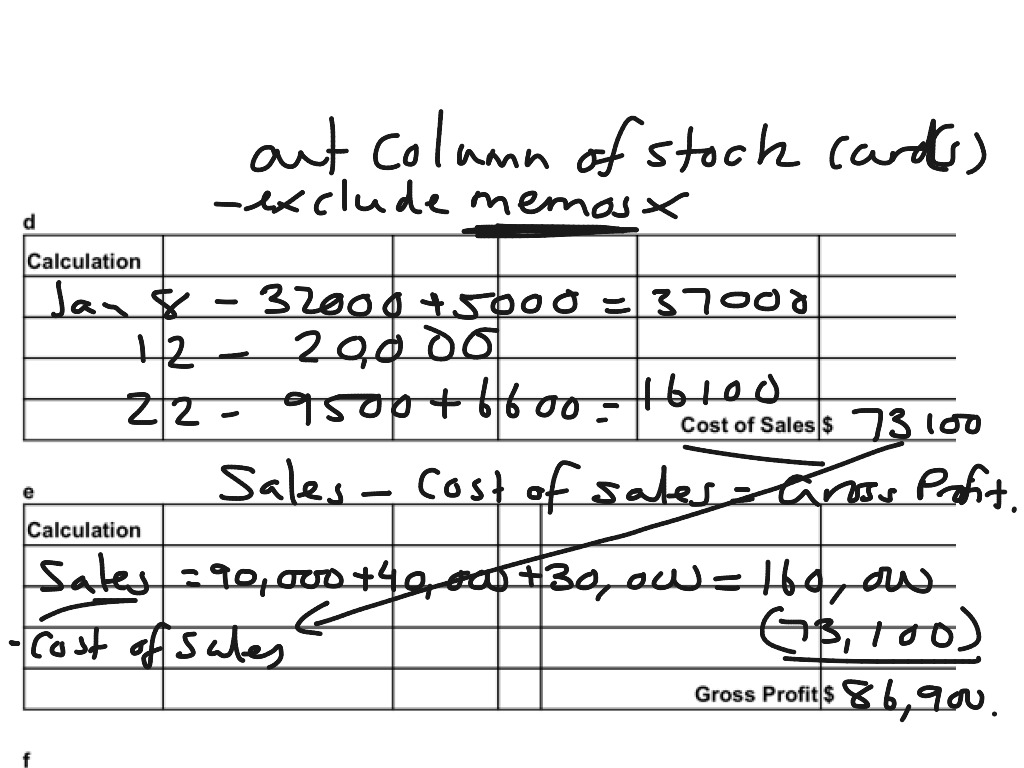 out column of stock card(s)
- exclude memos x
d
Calculation
Jan 8 - 32000 + 5000 = 37000
12 - 20,000
22 - 9500 + 6600 = 16100
Cost of Sales $ 73100
Sales - Cost of sales = Gross Profit.
e
Calculation
Sales = 90,000 + 40,000 + 30,000 = 160,000
- Cost of sales (73,100)
Gross Profit $ 86,900.
f